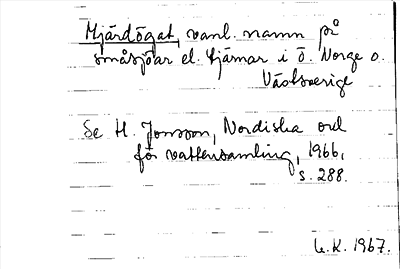 Mjärdögat, vanl. namn på
småsjöar el. tjärnar i ö. Norge o.
Västsverige
Se H. Jonsson, Nordiska ord
för vattensamling, 1966,
s. 288.
L.K. 1967.